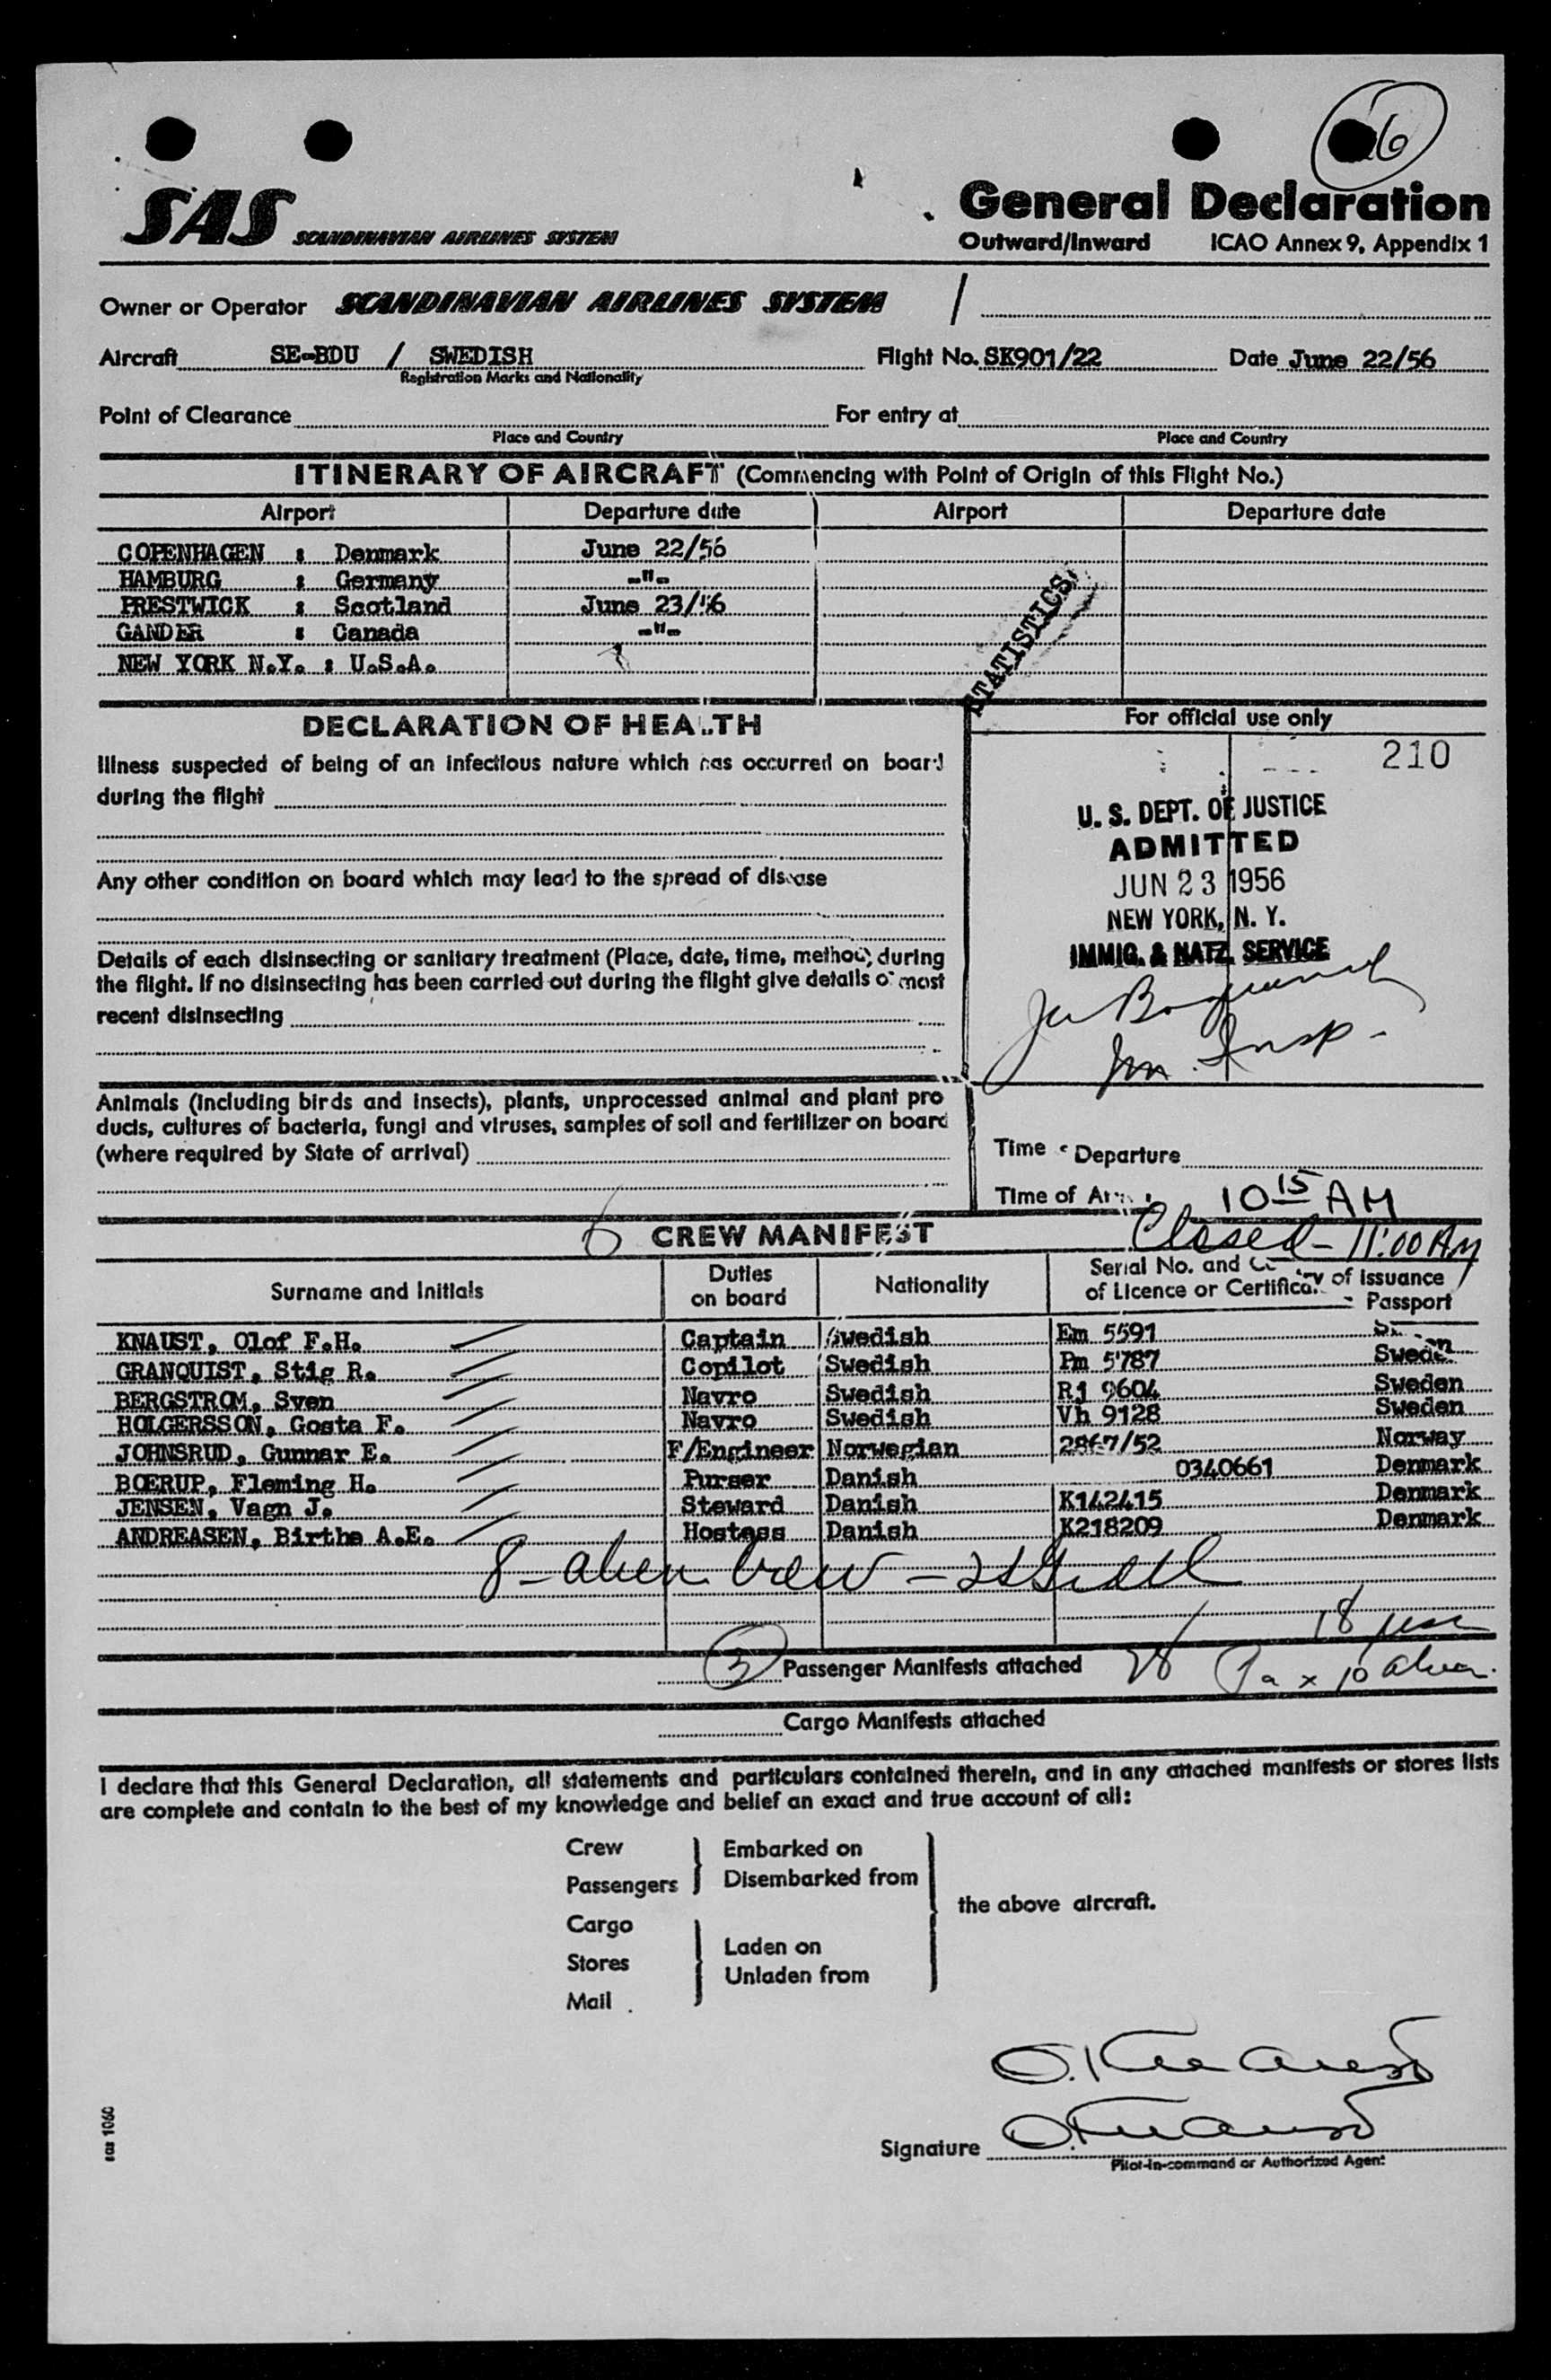 6
SAS SCANDINAVIAN AIRLINES SYSTEM
General Declaration
Outward/Inward ICAO Annex 9, Appendix 1
Owner or Operator SCANDINAVIAN AIRLINES SYSTEM /
Aircraft SE-BDU / SWEDISH Flight No. SK901/22 Date June 22/56
Registration Marks and Nationality
Point of Clearance For entry at
Place and Country Place and Country
ITINERARY OF AIRCRAFT (Commencing with Point of Origin of this Flight No.)
Airport Departure date Airport Departure date
COPENHAGEN : Denmark June 22/56
HAMBURG : Germany -"-
PRESTWICK : Scotland June 23/56
GANDER : Canada -"-
NEW YORK N.Y. : U.S.A.
STATISTICS
DECLARATION OF HEALTH
Illness suspected of being of an infectious nature which has occurred on board
during the flight
Any other condition on board which may lead to the spread of disease
Details of each disinsecting or sanitary treatment (Place, date, time, method) during
the flight. If no disinsecting has been carried out during the flight give details of most
recent disinsecting
For official use only
210
U. S. DEPT. OF JUSTICE
ADMITTED
JUN 23 1956
NEW YORK, N. Y.
IMMIG. & NATZ. SERVICE
Im. Insp.
Animals (including birds and insects), plants, unprocessed animal and plant pro
ducts, cultures of bacteria, fungi and viruses, samples of soil and fertilizer on board
(where required by State of arrival)
Time Departure
Time of 10 15 AM
Closed - 11:00 AM
6 CREW MANIFEST
Surname and Initials
Duties
on board
Nationality
Serial No. and
of Licence or Certificate of Issuance
Passport
KNAUST, Olof F.H. Captain Swedish Em 5591
GRANQUIST, Stig R. Copilot Swedish Pm 5787 Sweden
BERGSTROM, Sven Navro Swedish Rj 9604 Sweden
HOLGERSSON, Gosta F. Navro Swedish Vh 9128 Sweden
JOHNSRUD, Gunnar E. F/Engineer Norwegian 2867/52 Norway
BOERUP, Fleming H. Purser Danish 0340661 Denmark
JENSEN, Vagn J. Steward Danish K142415 Denmark
ANDREASEN, Birthe A.E. Hostess Danish K218209 Denmark
8 - alien crew -
18
3 Passenger Manifests attached 28 Pax 10 alien
Cargo Manifests attached
I declare that this General Declaration, all statements and particulars contained therein, and in any attached manifests or stores lists
are complete and contain to the best of my knowledge and belief an exact and true account of all:
Crew
Passengers
Embarked on
Disembarked from
Cargo
Stores
Mail
Laden on
Unladen from
the above aircraft.
O. Knaust
Signature O. Knaust
Pilot-in-command or Authorized Agent
sas 1060